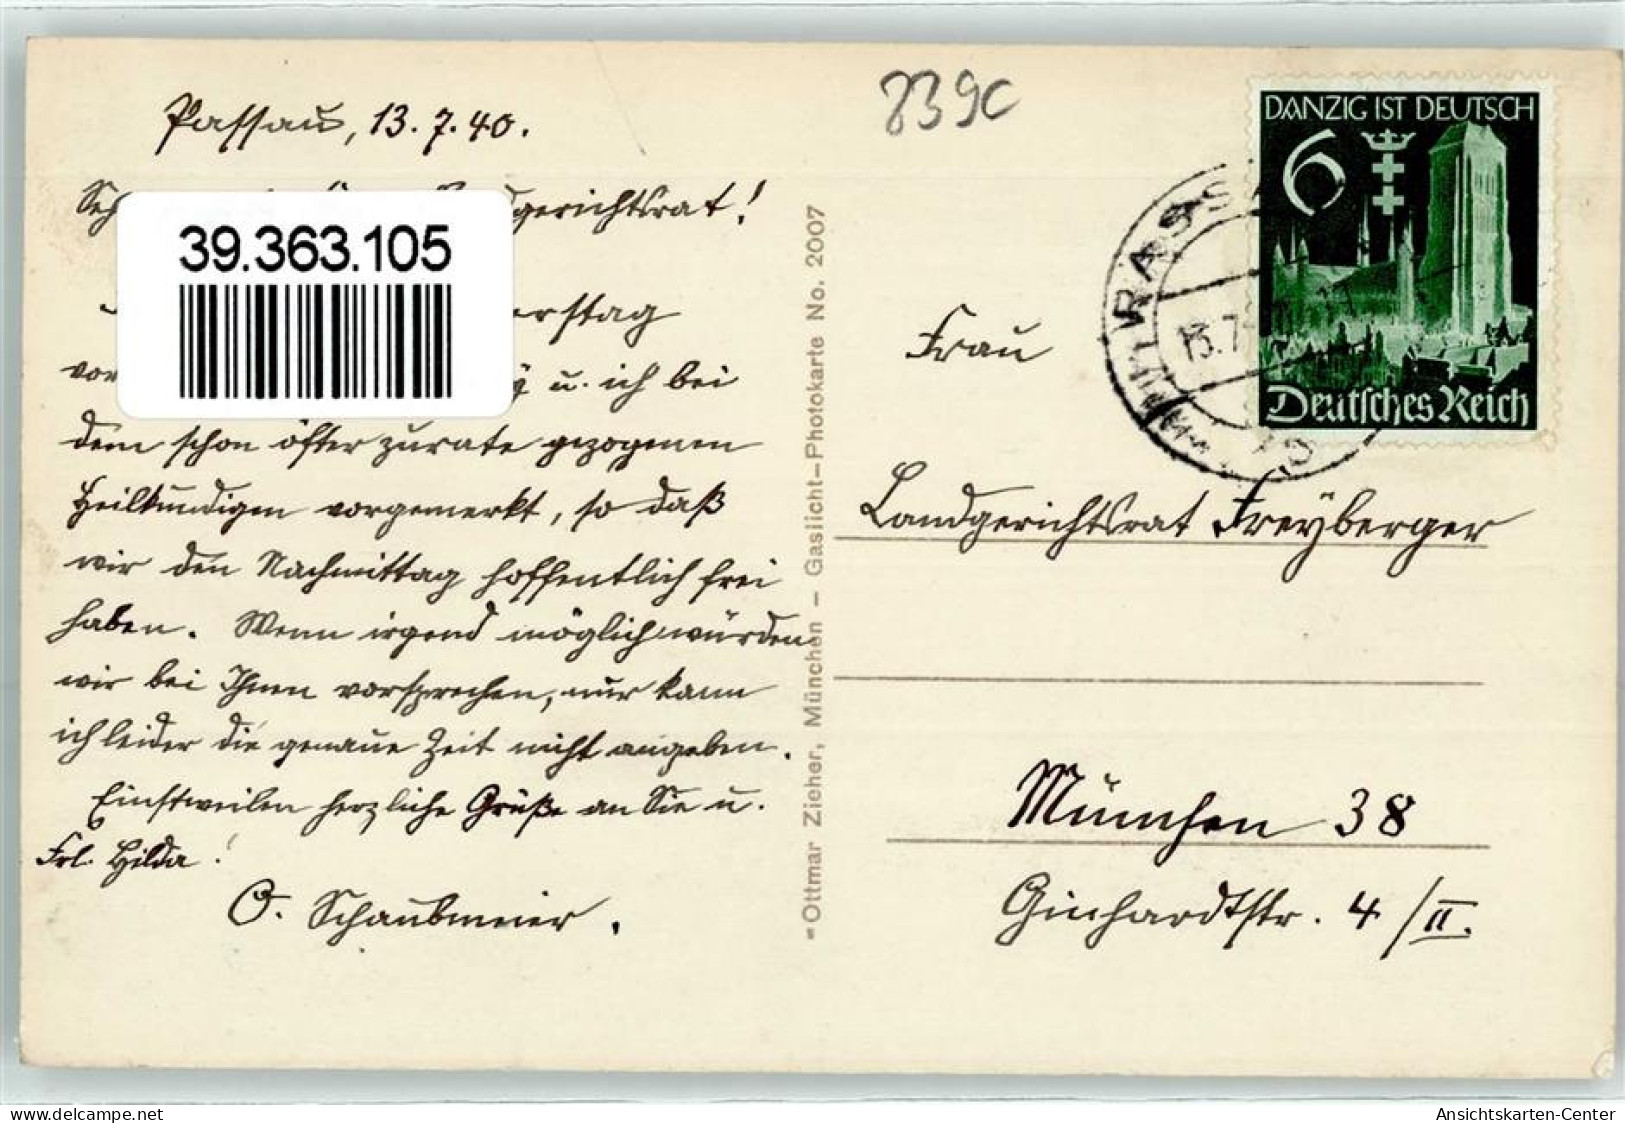 Passau, 13.7.40.
gerichtsrat!
39.363.105
rstag
vor u. ich bei
dem schon öfter zurate gezogenen
Heilkundigen vorgemerkt, so daß
wir den Nachmittag hoffentlich frei
haben. Wenn irgend möglich würden
wir bei Ihnen vorsprechen, nur kann
ich leider die genaue Zeit nicht angeben.
Einstweilen herzliche Grüße an Sie u.
Frl. Hilda!
O. Schaubmeier.
Ottmar Zieher, München - Gaslicht-Photokarte No. 2007
DANZIG IST DEUTSCH
6
Deutsches Reich
Frau
Landgerichtsrat Freyberger
München 38
Ginhardtstr. 4/II.
delcampe.net
Ansichtskarten-Center